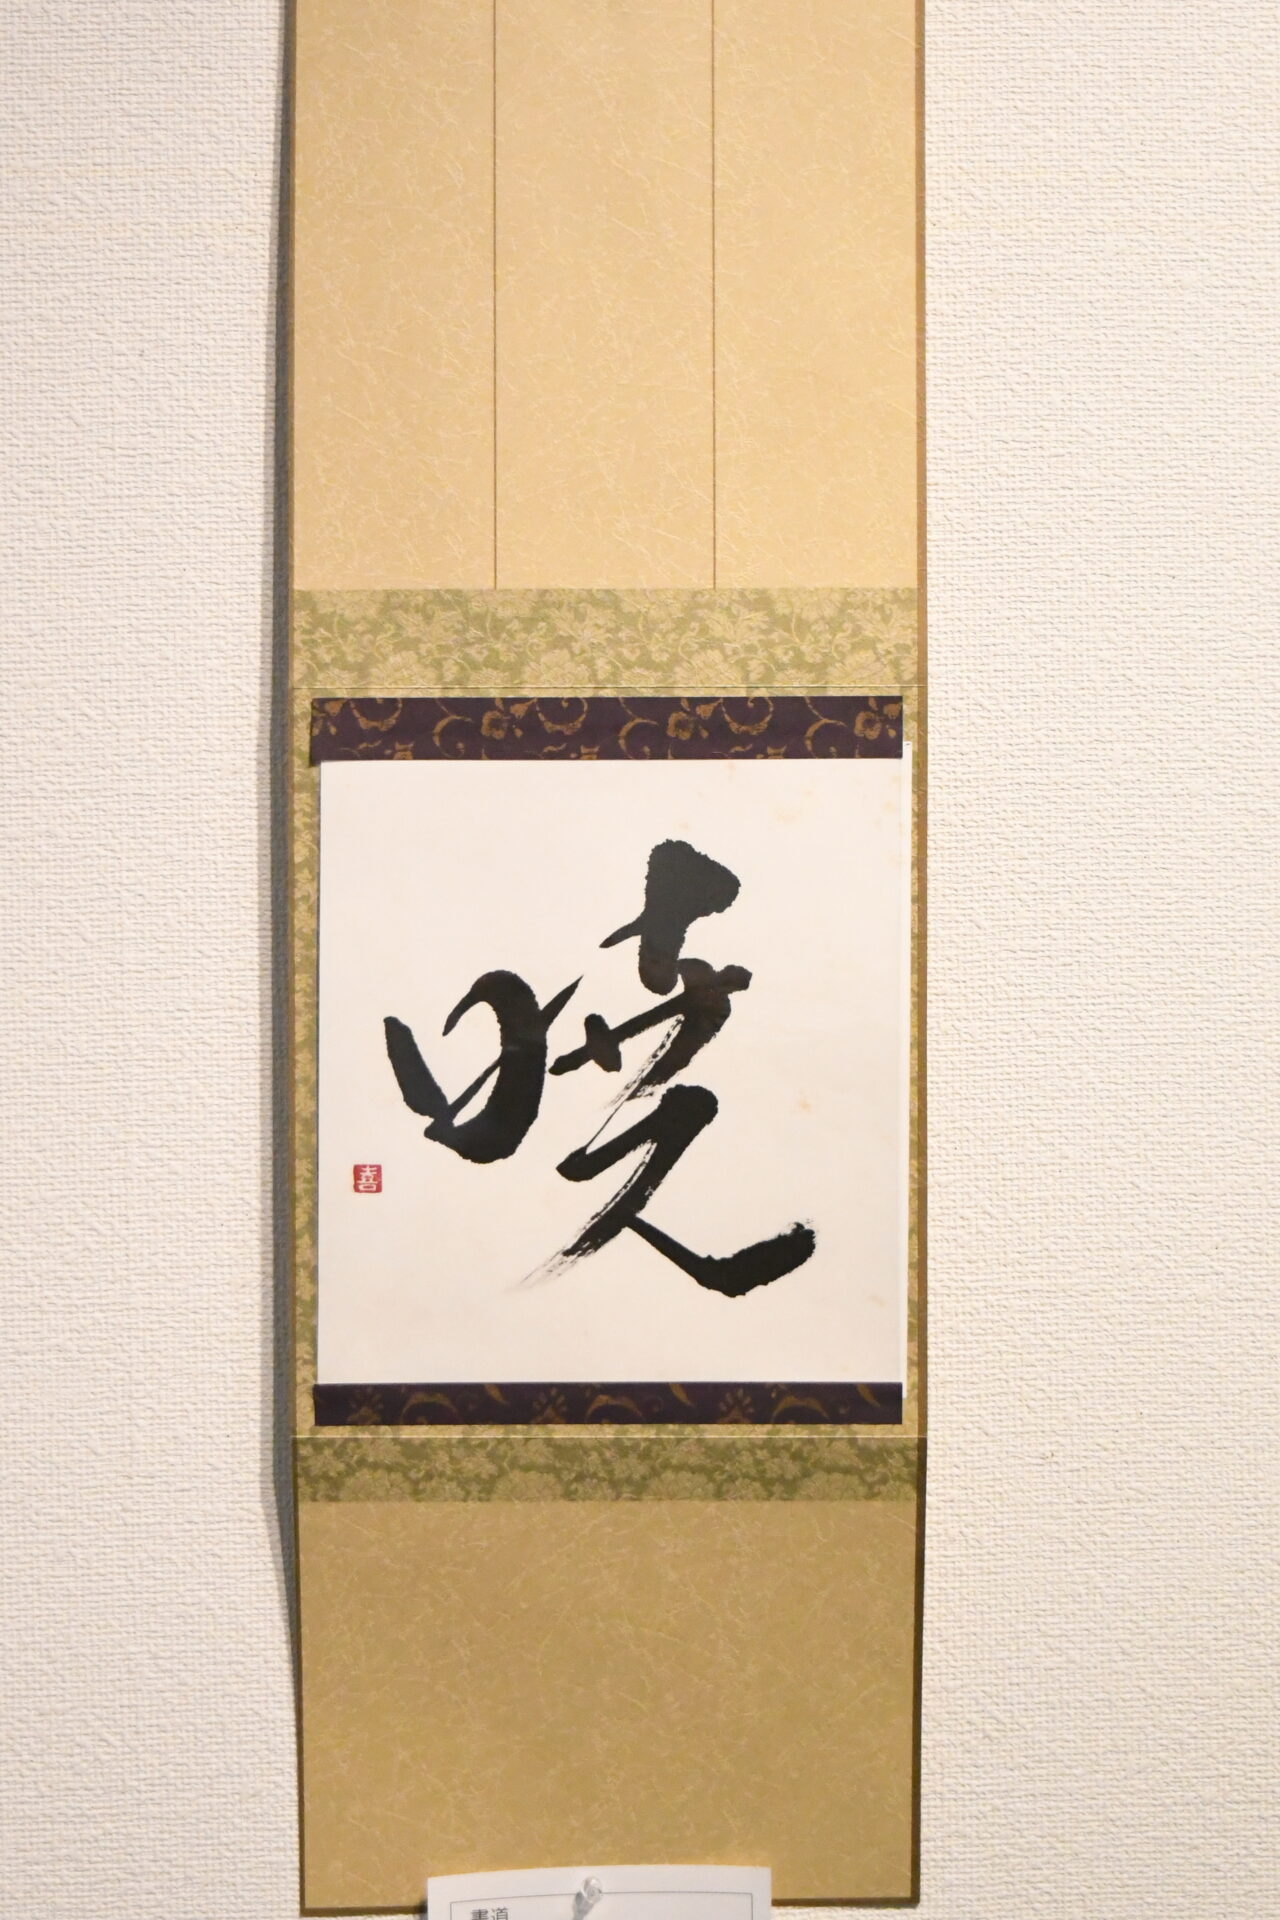 暁
喜
書道